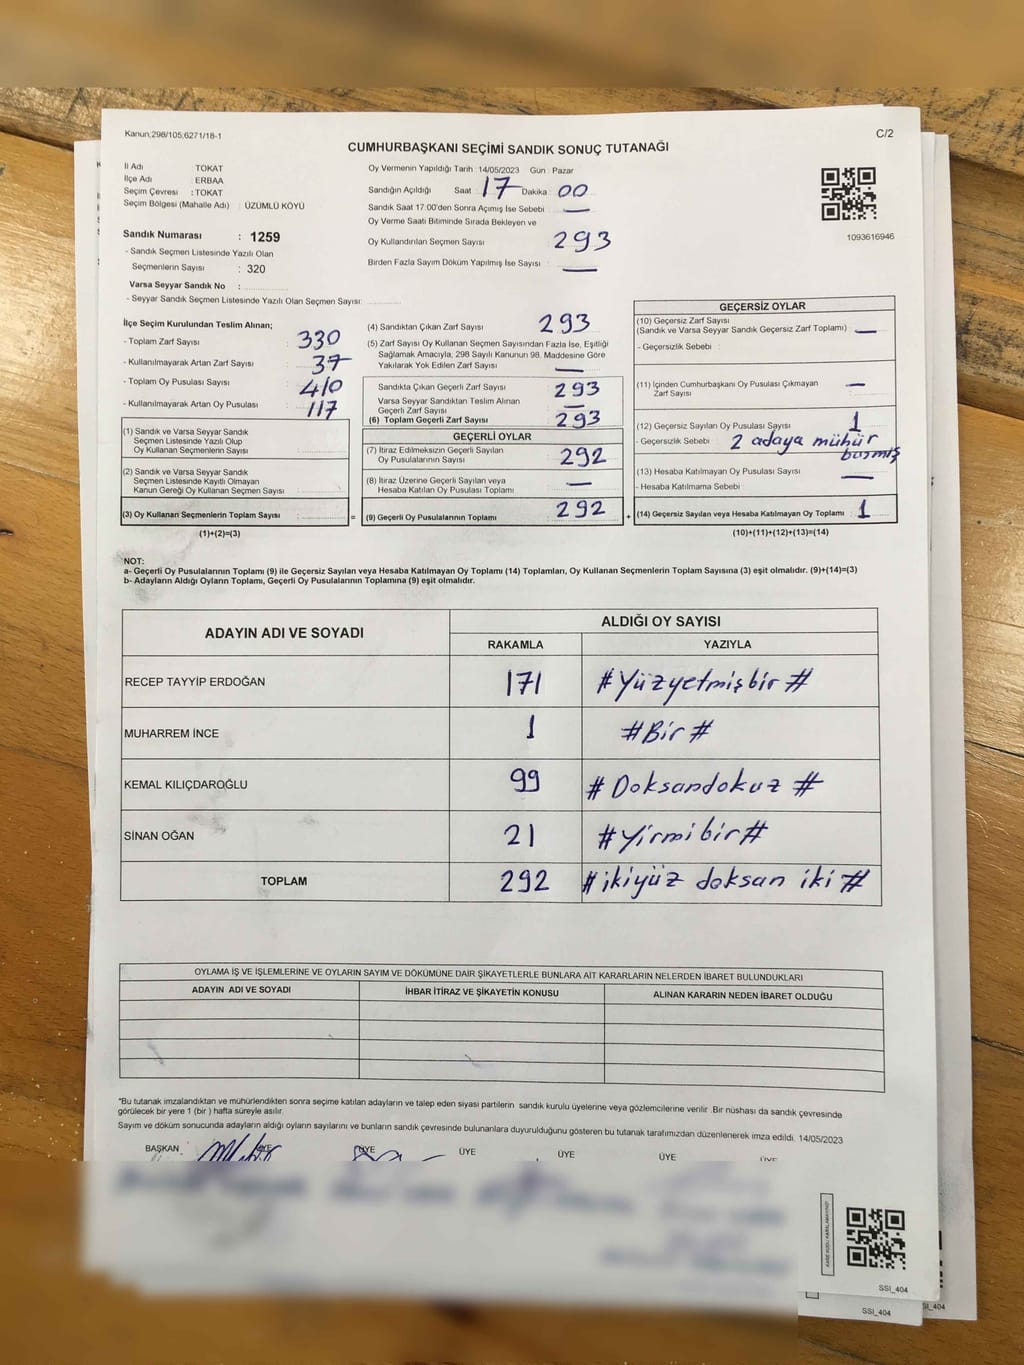 Kanun;298/105;6271/18-1
C/2
CUMHURBAŞKANI SEÇİMİ SANDIK SONUÇ TUTANAĞI
İl Adı : TOKAT
İlçe Adı : ERBAA
Seçim Çevresi : TOKAT
Seçim Bölgesi (Mahalle Adı) : ÜZÜMLÜ KÖYÜ
Oy Vermenin Yapıldığı Tarih :14/05/2023 Gün : Pazar
Sandığın Açıldığı Saat 17 Dakika : 00
Sandık Saat 17:00'den Sonra Açılmış İse Sebebi : —
Oy Verme Saati Bitiminde Sırada Bekleyen ve
Oy Kullandırılan Seçmen Sayısı : 293
Birden Fazla Sayım Döküm Yapılmış İse Sayısı : —
1093616946
Sandık Numarası : 1259
- Sandık Seçmen Listesinde Yazılı Olan
Seçmenlerin Sayısı : 320
Varsa Seyyar Sandık No :
- Seyyar Sandık Seçmen Listesinde Yazılı Olan Seçmen Sayısı:
İlçe Seçim Kurulundan Teslim Alınan;
- Toplam Zarf Sayısı : 330
- Kullanılmayarak Artan Zarf Sayısı : 37
- Toplam Oy Pusulası Sayısı : 410
- Kullanılmayarak Artan Oy Pusulası : 117
(1) Sandık ve Varsa Seyyar Sandık
Seçmen Listesinde Yazılı Olup
Oy Kullanan Seçmenlerin Sayısı :
(2) Sandık ve Varsa Seyyar Sandık
Seçmen Listesinde Kayıtlı Olmayan
Kanun Gereği Oy Kullanan Seçmen Sayısı :
(3) Oy Kullanan Seçmenlerin Toplam Sayısı :
(1)+(2)=(3)
(4) Sandıktan Çıkan Zarf Sayısı : 293
(5) Zarf Sayısı Oy Kullanan Seçmen Sayısından Fazla İse, Eşitliği
Sağlamak Amacıyla, 298 Sayılı Kanunun 98. Maddesine Göre
Yakılarak Yok Edilen Zarf Sayısı : —
Sandıkta Çıkan Geçerli Zarf Sayısı : 293
Varsa Seyyar Sandıktan Teslim Alınan
Geçerli Zarf Sayısı : —
(6) Toplam Geçerli Zarf Sayısı : 293
GEÇERLİ OYLAR
(7) İtiraz Edilmeksizin Geçerli Sayılan
Oy Pusulalarının Sayısı : 292
(8) İtiraz Üzerine Geçerli Sayılan veya
Hesaba Katılan Oy Pusulası Toplamı : —
= (9) Geçerli Oy Pusulalarının Toplamı : 292
GEÇERSİZ OYLAR
(10) Geçersiz Zarf Sayısı
(Sandık ve Varsa Seyyar Sandık Geçersiz Zarf Toplamı) : —
- Geçersizlik Sebebi :
(11) İçinden Cumhurbaşkanı Oy Pusulası Çıkmayan
Zarf Sayısı : —
(12) Geçersiz Sayılan Oy Pusulası Sayısı : 1
- Geçersizlik Sebebi : 2 adaya mühür
basmış
(13) Hesaba Katılmayan Oy Pusulası Sayısı : —
- Hesaba Katılmama Sebebi :
+ (14) Geçersiz Sayılan veya Hesaba Katılmayan Oy Toplamı : 1
(10)+(11)+(12)+(13)=(14)
NOT:
a- Geçerli Oy Pusulalarının Toplamı (9) ile Geçersiz Sayılan veya Hesaba Katılmayan Oy Toplamı (14) Toplamları, Oy Kullanan Seçmenlerin Toplam Sayısına (3) eşit olmalıdır. (9)+(14)=(3)
b- Adayların Aldığı Oyların Toplamı, Geçerli Oy Pusulalarının Toplamına (9) eşit olmalıdır.
ADAYIN ADI VE SOYADI
ALDIĞI OY SAYISI
RAKAMLA YAZIYLA
RECEP TAYYİP ERDOĞAN 171 #Yüzyetmişbir#
MUHARREM İNCE 1 #Bir#
KEMAL KILIÇDAROĞLU 99 #Doksandokuz#
SİNAN OĞAN 21 #Yirmibir#
TOPLAM 292 #ikiyüz doksan iki#
OYLAMA İŞ VE İŞLEMLERİNE VE OYLARIN SAYIM VE DÖKÜMÜNE DAİR ŞİKAYETLERLE BUNLARA AİT KARARLARIN NELERDEN İBARET BULUNDUKLARI
ADAYIN ADI VE SOYADI İHBAR İTİRAZ VE ŞİKAYETİN KONUSU ALINAN KARARIN NEDEN İBARET OLDUĞU
*Bu tutanak imzalandıktan ve mühürlendikten sonra seçime katılan adayların ve talep eden siyasi partilerin sandık kurulu üyelerine veya gözlemcilerine verilir .Bir nüshası da sandık çevresinde
görülecek bir yere 1 (bir ) hafta süreyle asılır.
Sayım ve döküm sonucunda adayların aldığı oyların sayılarını ve bunların sandık çevresinde bulunanlara duyurulduğunu gösteren bu tutanak tarafımızdan düzenlenerek imza edildi. 14/05/2023
BAŞKAN ÜYE ÜYE ÜYE ÜYE ÜYE ÜYE
KARE KODU KARALAMAYINIZ!
SSI_404
SSI_404
SI_404